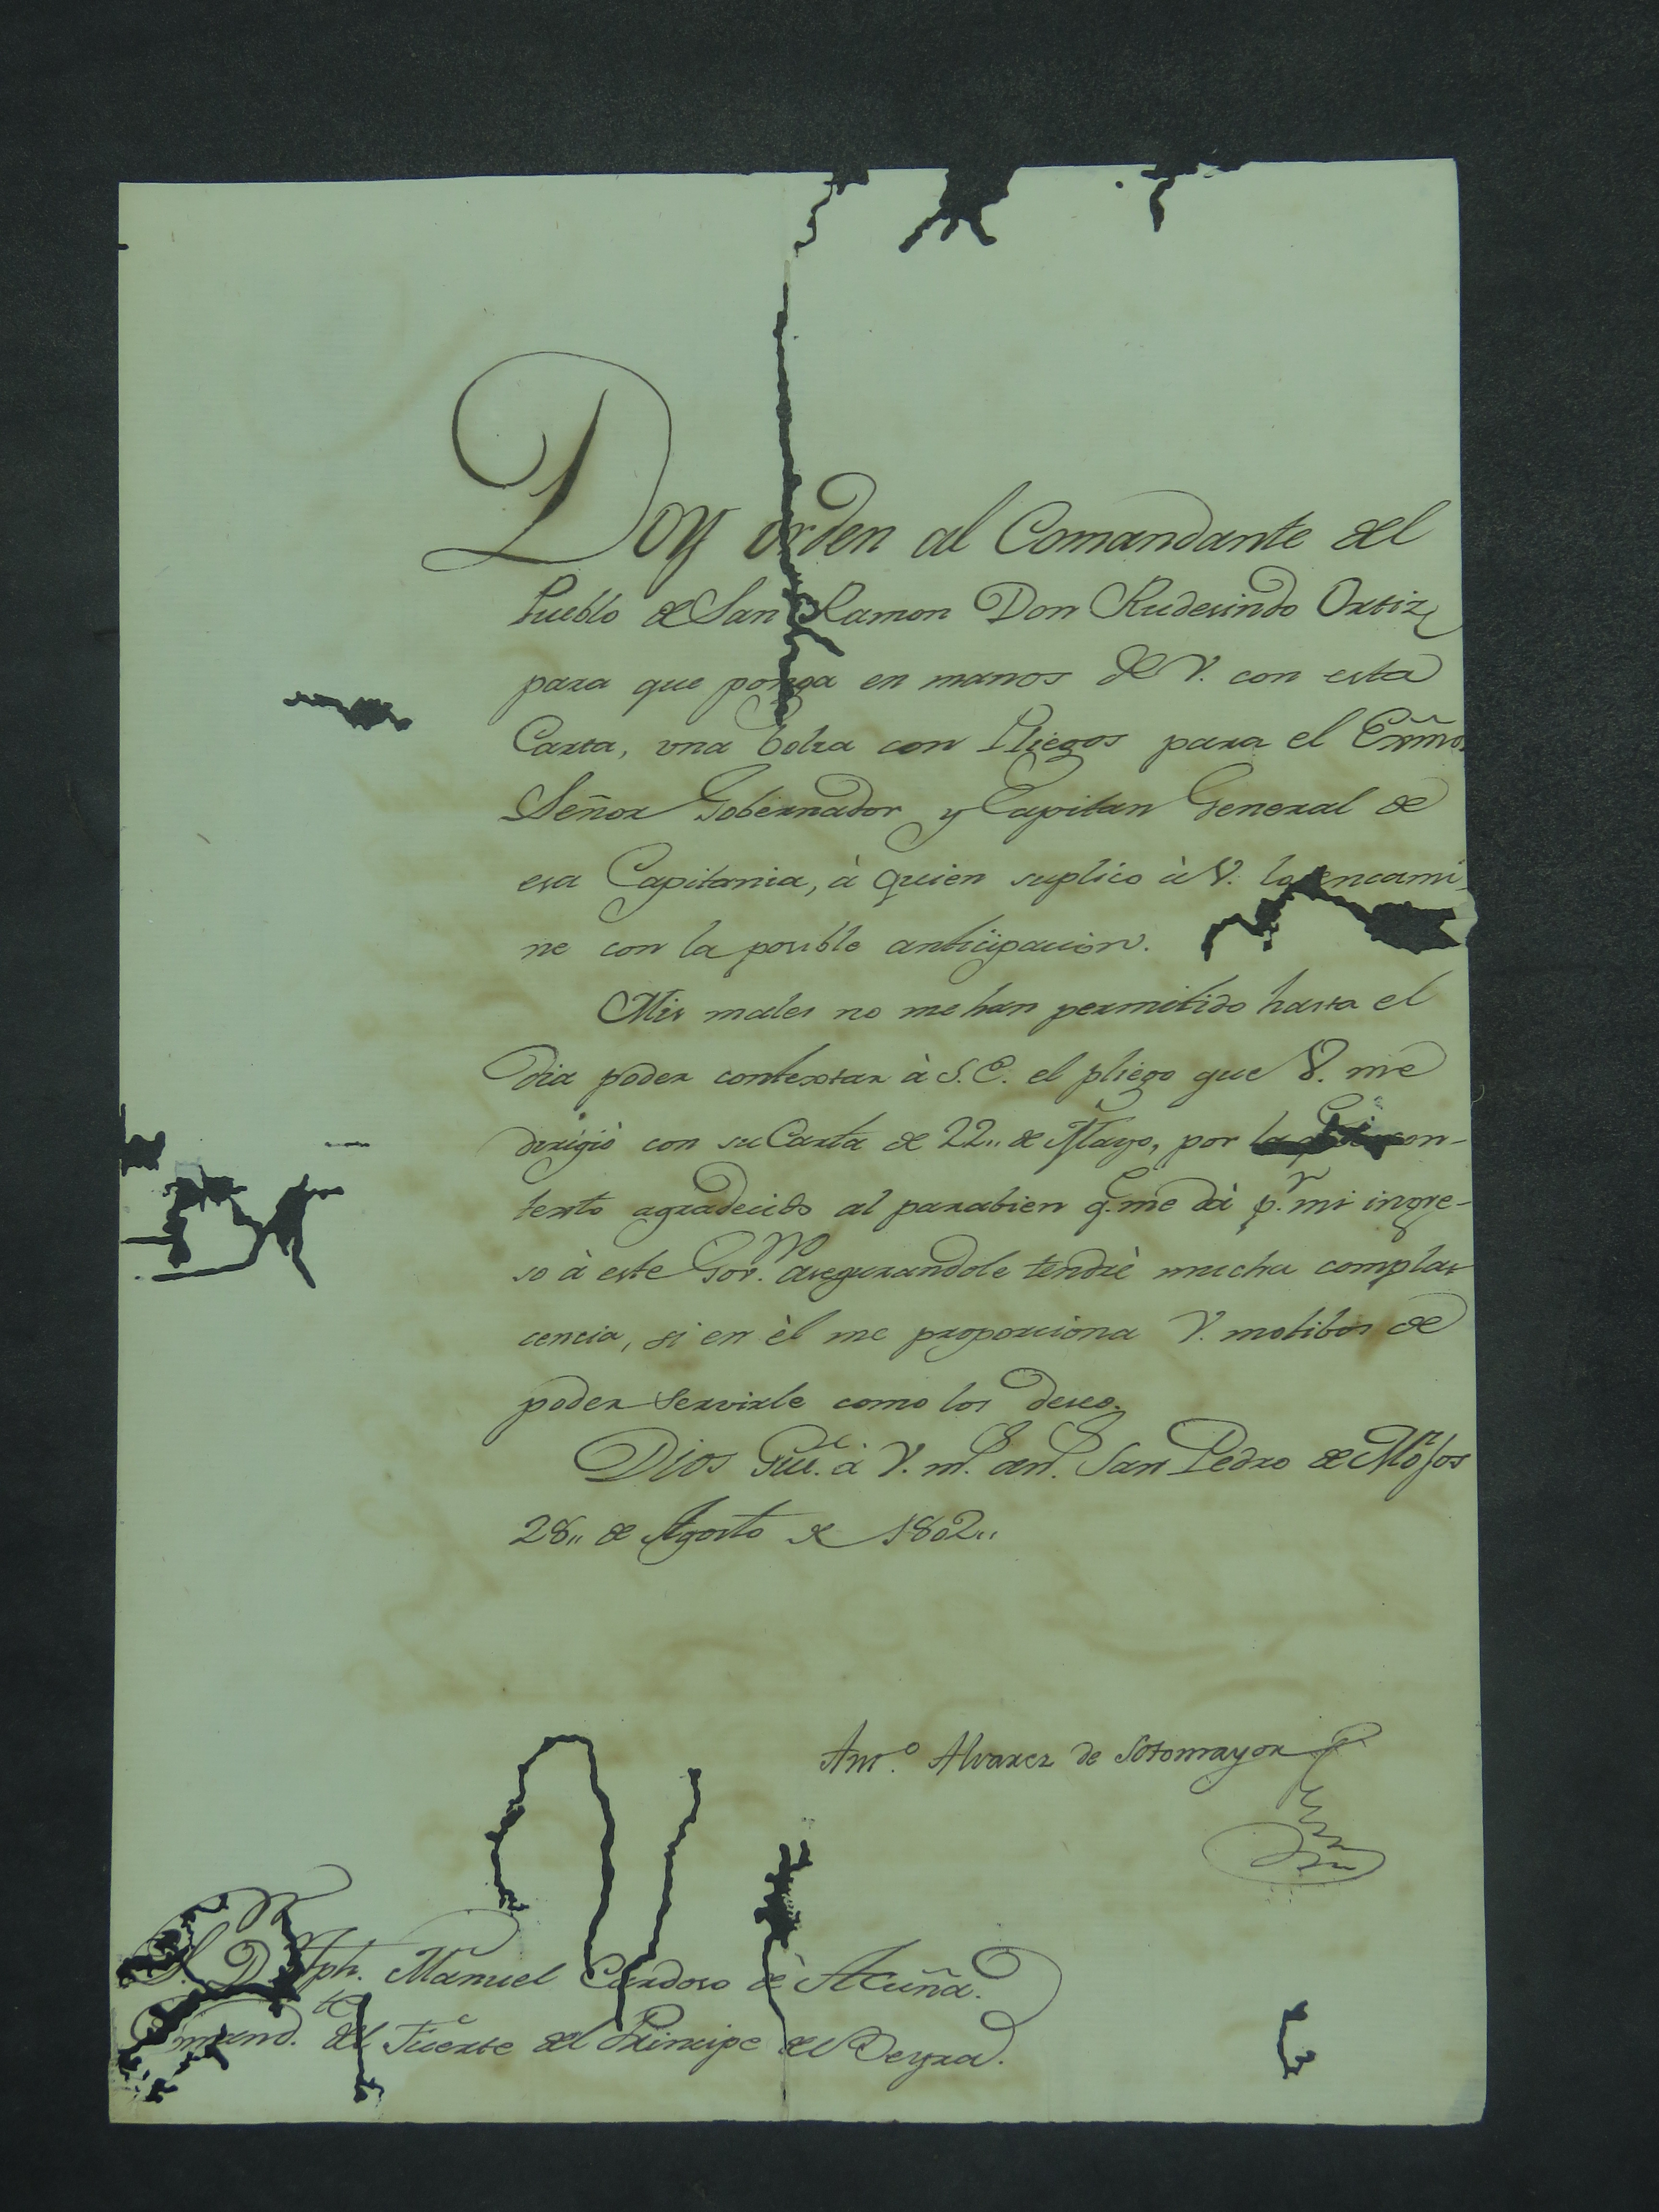 Doy orden al Comandante del
Pueblo de San Ramon Don Rudesindo Ortiz
para que ponga en manos de V. con esta
Carta, vna bolsa con Pliegos para el Exmo.
Señor Gobernador y Capitan General de
esa Capitania, à quien suplico à V. la encami-
ne con la posible anticipacion.
Mis males no me han permitido hasta el
dia poder contextar à S.E. el pliego que V. me
dirigiò con su Carta de 22,, de Mayo, por la con-
texto agradecido al parabien q.e me dà p.r mi ingre-
so à este Gov.no asegurandole tendrè mucha compla-
cencia, si en èl me proporciona V. motibos de
poder servirle como los deseo.
Dios Gue. à V. m.s an.s San Pedro de Moxos
28,, de Agosto de 1802,,
Ant.o Alvarez de Sotomayor
S.r D. Jph. Manuel Cardoso de Acuña.
Comend.te del Fuerte del Principe de Beyra.